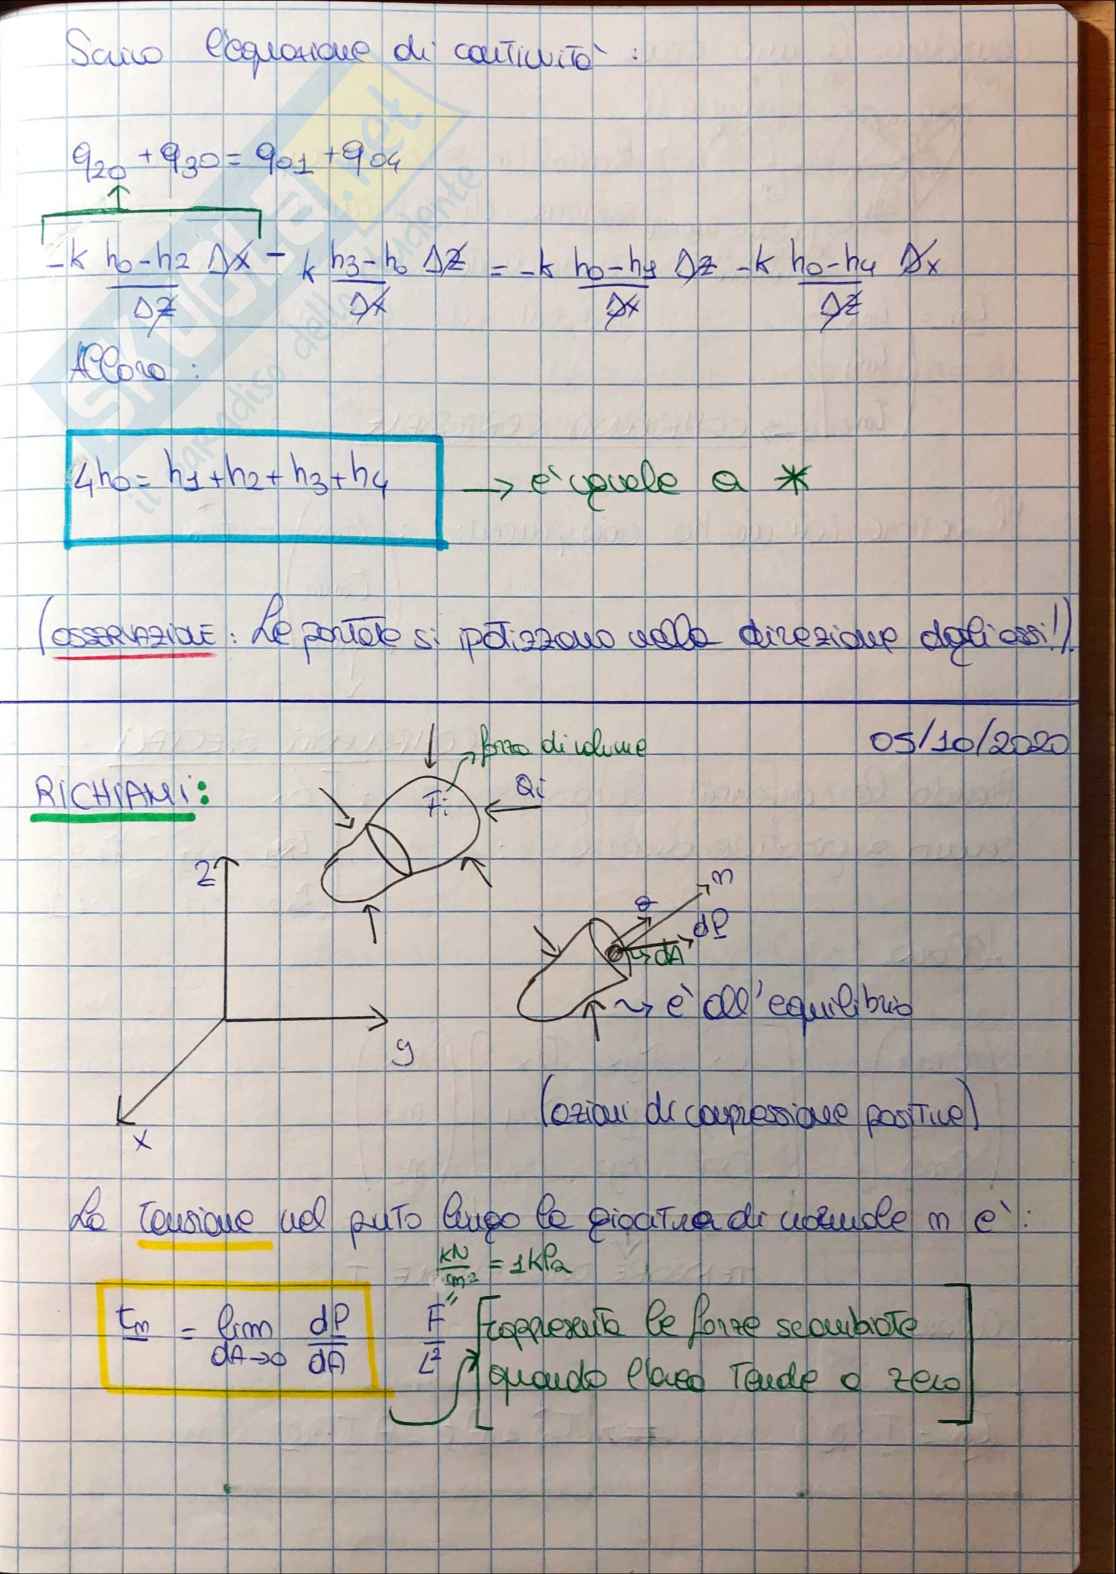 Scrivo l'equazione di continuità:
q20 + q30 = q01 + q04
-k h0-h2/Δz Δx - k h3-h0/Δx Δz = -k h0-h1/Δx Δz - k h0-h4/Δz Δx
Allora:
4h0 = h1+h2+h3+h4 → è uguale a *
(OSSERVAZIONE: Le portate si ipotizzano nella direzione degli assi!).
05/10/2020
RICHIAMI:
forza di volume
Fi
Qi
z
y
x
n
dP
dA
è all'equilibrio
(azioni di compressione positive)
La tensione nel punto lungo la giacitura di normale n è:
kN/m² = 1 kPa
tn = lim dA→0 dP/dA
F/L²
[rappresenta le forze scambiate
quando l'area tende a zero]
SKUOLA.net
il paradiso dello studente